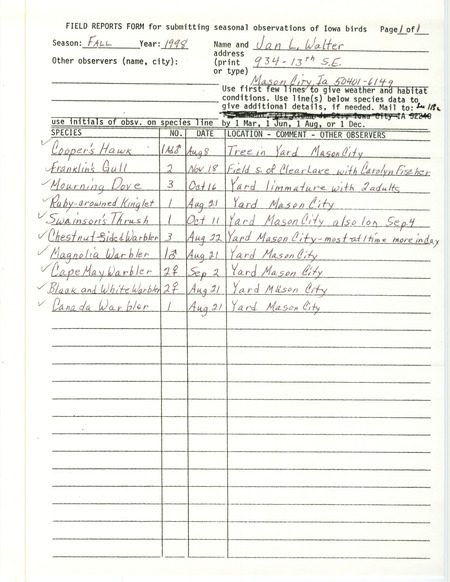 FIELD REPORTS FORM for submitting seasonal observations of Iowa birds Page 1 of 1
Season: FALL Year: 1998 Name and Jan L. Walter
address
Other observers (name, city): (print 934-13th S.E.
or type)
Mason City, Ia 50401-6149
Use first few lines to give weather and habitat
conditions. Use line(s) below species data to
give additional details, if needed. Mail to:
Iowa City IA 52240
use initials of obsv. on species line by 1 Mar, 1 Jun, 1 Aug, or 1 Dec.
SPECIES NO. DATE LOCATION - COMMENT - OTHER OBSERVERS
✓ Cooper's Hawk 1 Ad♂ Aug 8 Tree in Yard Mason City
✓ Franklin's Gull 2 Nov 18 Field s. of Clear Lake with Carolyn Fischer
✓ Mourning Dove 3 Oct 16 Yard 1 immature with 2 adults
✓ Ruby-crowned Kinglet 1 Aug 21 Yard Mason City
✓ Swainson's Thrush 1 Oct 11 Yard Mason City also 1 on Sep 4
✓ Chestnut Sided Warbler 3 Aug 22 Yard Mason City - most at 1 time more in day
✓ Magnolia Warbler 1♂ Aug 21 Yard Mason City
✓ Cape May Warbler 2♀ Sep 2 Yard Mason City
✓ Black and White Warbler 2♀ Aug 21 Yard Mason City
✓ Canada Warbler 1 Aug 21 Yard Mason City